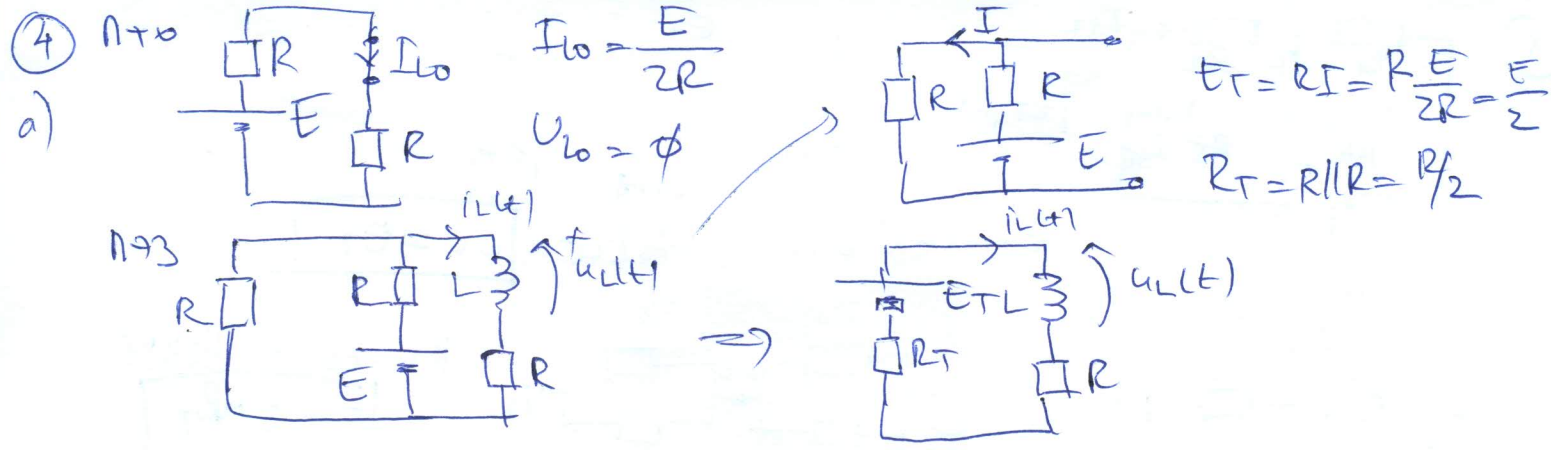 ④ n+0
a)
R
E
I_L0
R
I_L0 = E/2R
U_L0 = ϕ
I
R
R
E
E_T = RI = R E/2R = E/2
R_T = R||R = R/2
n→3
R
R
E
i_L(t)
L
+
u_L(t)
R
⇒
i_L(t)
E_T
L
u_L(t)
R_T
R